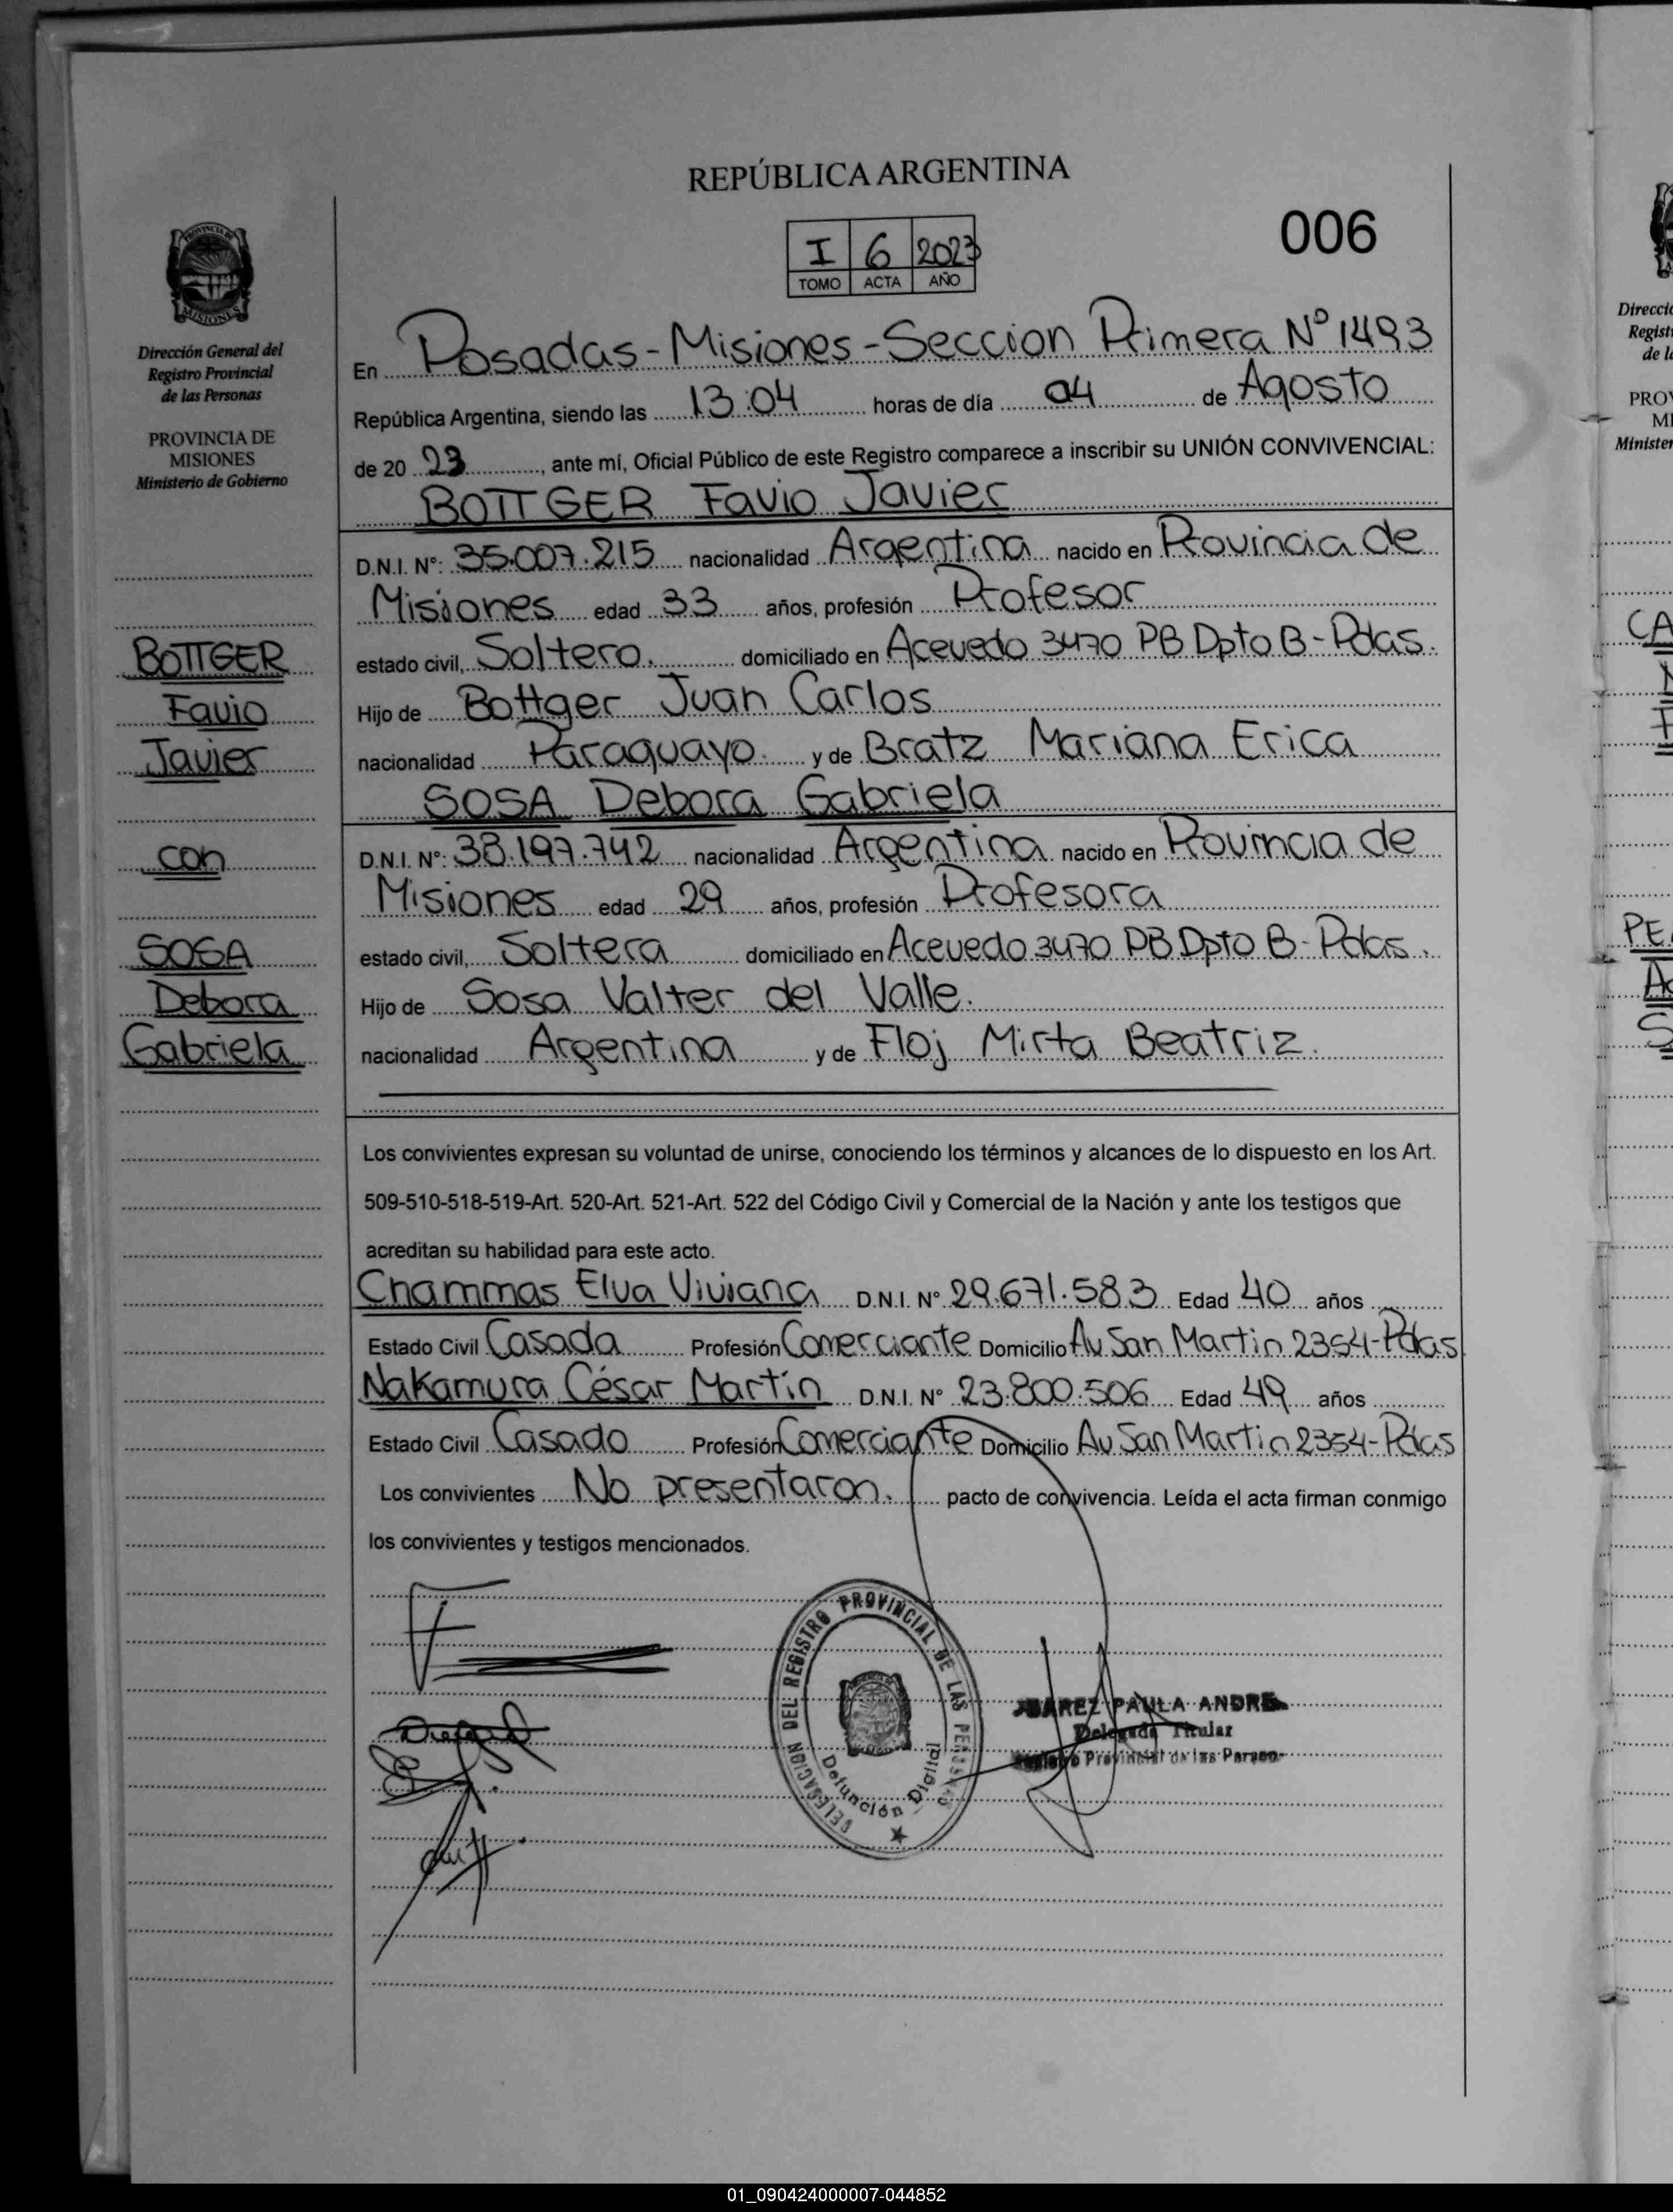 REPÚBLICA ARGENTINA
006
I 6 2023
TOMO ACTA AÑO
PROVINCIA DE
MISIONES
Dirección General del
Registro Provincial
de las Personas
PROVINCIA DE
MISIONES
Ministerio de Gobierno
BOTTGER
Favio
Javier
con
SOSA
Debora
Gabriela
En Posadas - Misiones - Seccion Primera N° 1493
República Argentina, siendo las 13:04 horas de día 04 de Agosto
de 20 23, ante mí, Oficial Público de este Registro comparece a inscribir su UNIÓN CONVIVENCIAL:
BOTTGER Favio Javier
D.N.I. N°: 35.007.215 nacionalidad Argentina nacido en Provincia de
Misiones edad 33 años, profesión Profesor
estado civil, Soltero. domiciliado en Acevedo 3470 PB Dpto B - Pdas.
Hijo de Bottger Juan Carlos
nacionalidad Paraguayo. y de Bratz Mariana Erica
SOSA Debora Gabriela
D.N.I. N°: 38.197.742 nacionalidad Argentina nacido en Provincia de
Misiones edad 29 años, profesión Profesora
estado civil, Soltera domiciliado en Acevedo 3470 PB Dpto B - Pdas.
Hijo de Sosa Valter del Valle.
nacionalidad Argentina y de Floj Mirta Beatriz.
Los convivientes expresan su voluntad de unirse, conociendo los términos y alcances de lo dispuesto en los Art.
509-510-518-519-Art. 520-Art. 521-Art. 522 del Código Civil y Comercial de la Nación y ante los testigos que
acreditan su habilidad para este acto.
Chammas Elva Viviana D.N.I. N° 29.671.583 Edad 40 años
Estado Civil Casada Profesión Comerciante Domicilio Av San Martin 2354 - Pdas
Nakamura César Martín D.N.I. N° 23.800.506 Edad 49 años
Estado Civil Casado Profesión Comerciante Domicilio Av San Martin 2354 - Pdas
Los convivientes No presentaron. pacto de convivencia. Leída el acta firman conmigo
los convivientes y testigos mencionados.
DELEGACION DEL REGISTRO PROVINCIAL DE LAS PERSONAS
Defunción Digital
JUAREZ PAULA ANDRE
Delegada Titular
Registro Provincial de las Person
Direcció
Regist
de l
PRO
MI
Minister
CA
PE
01_090424000007-044852